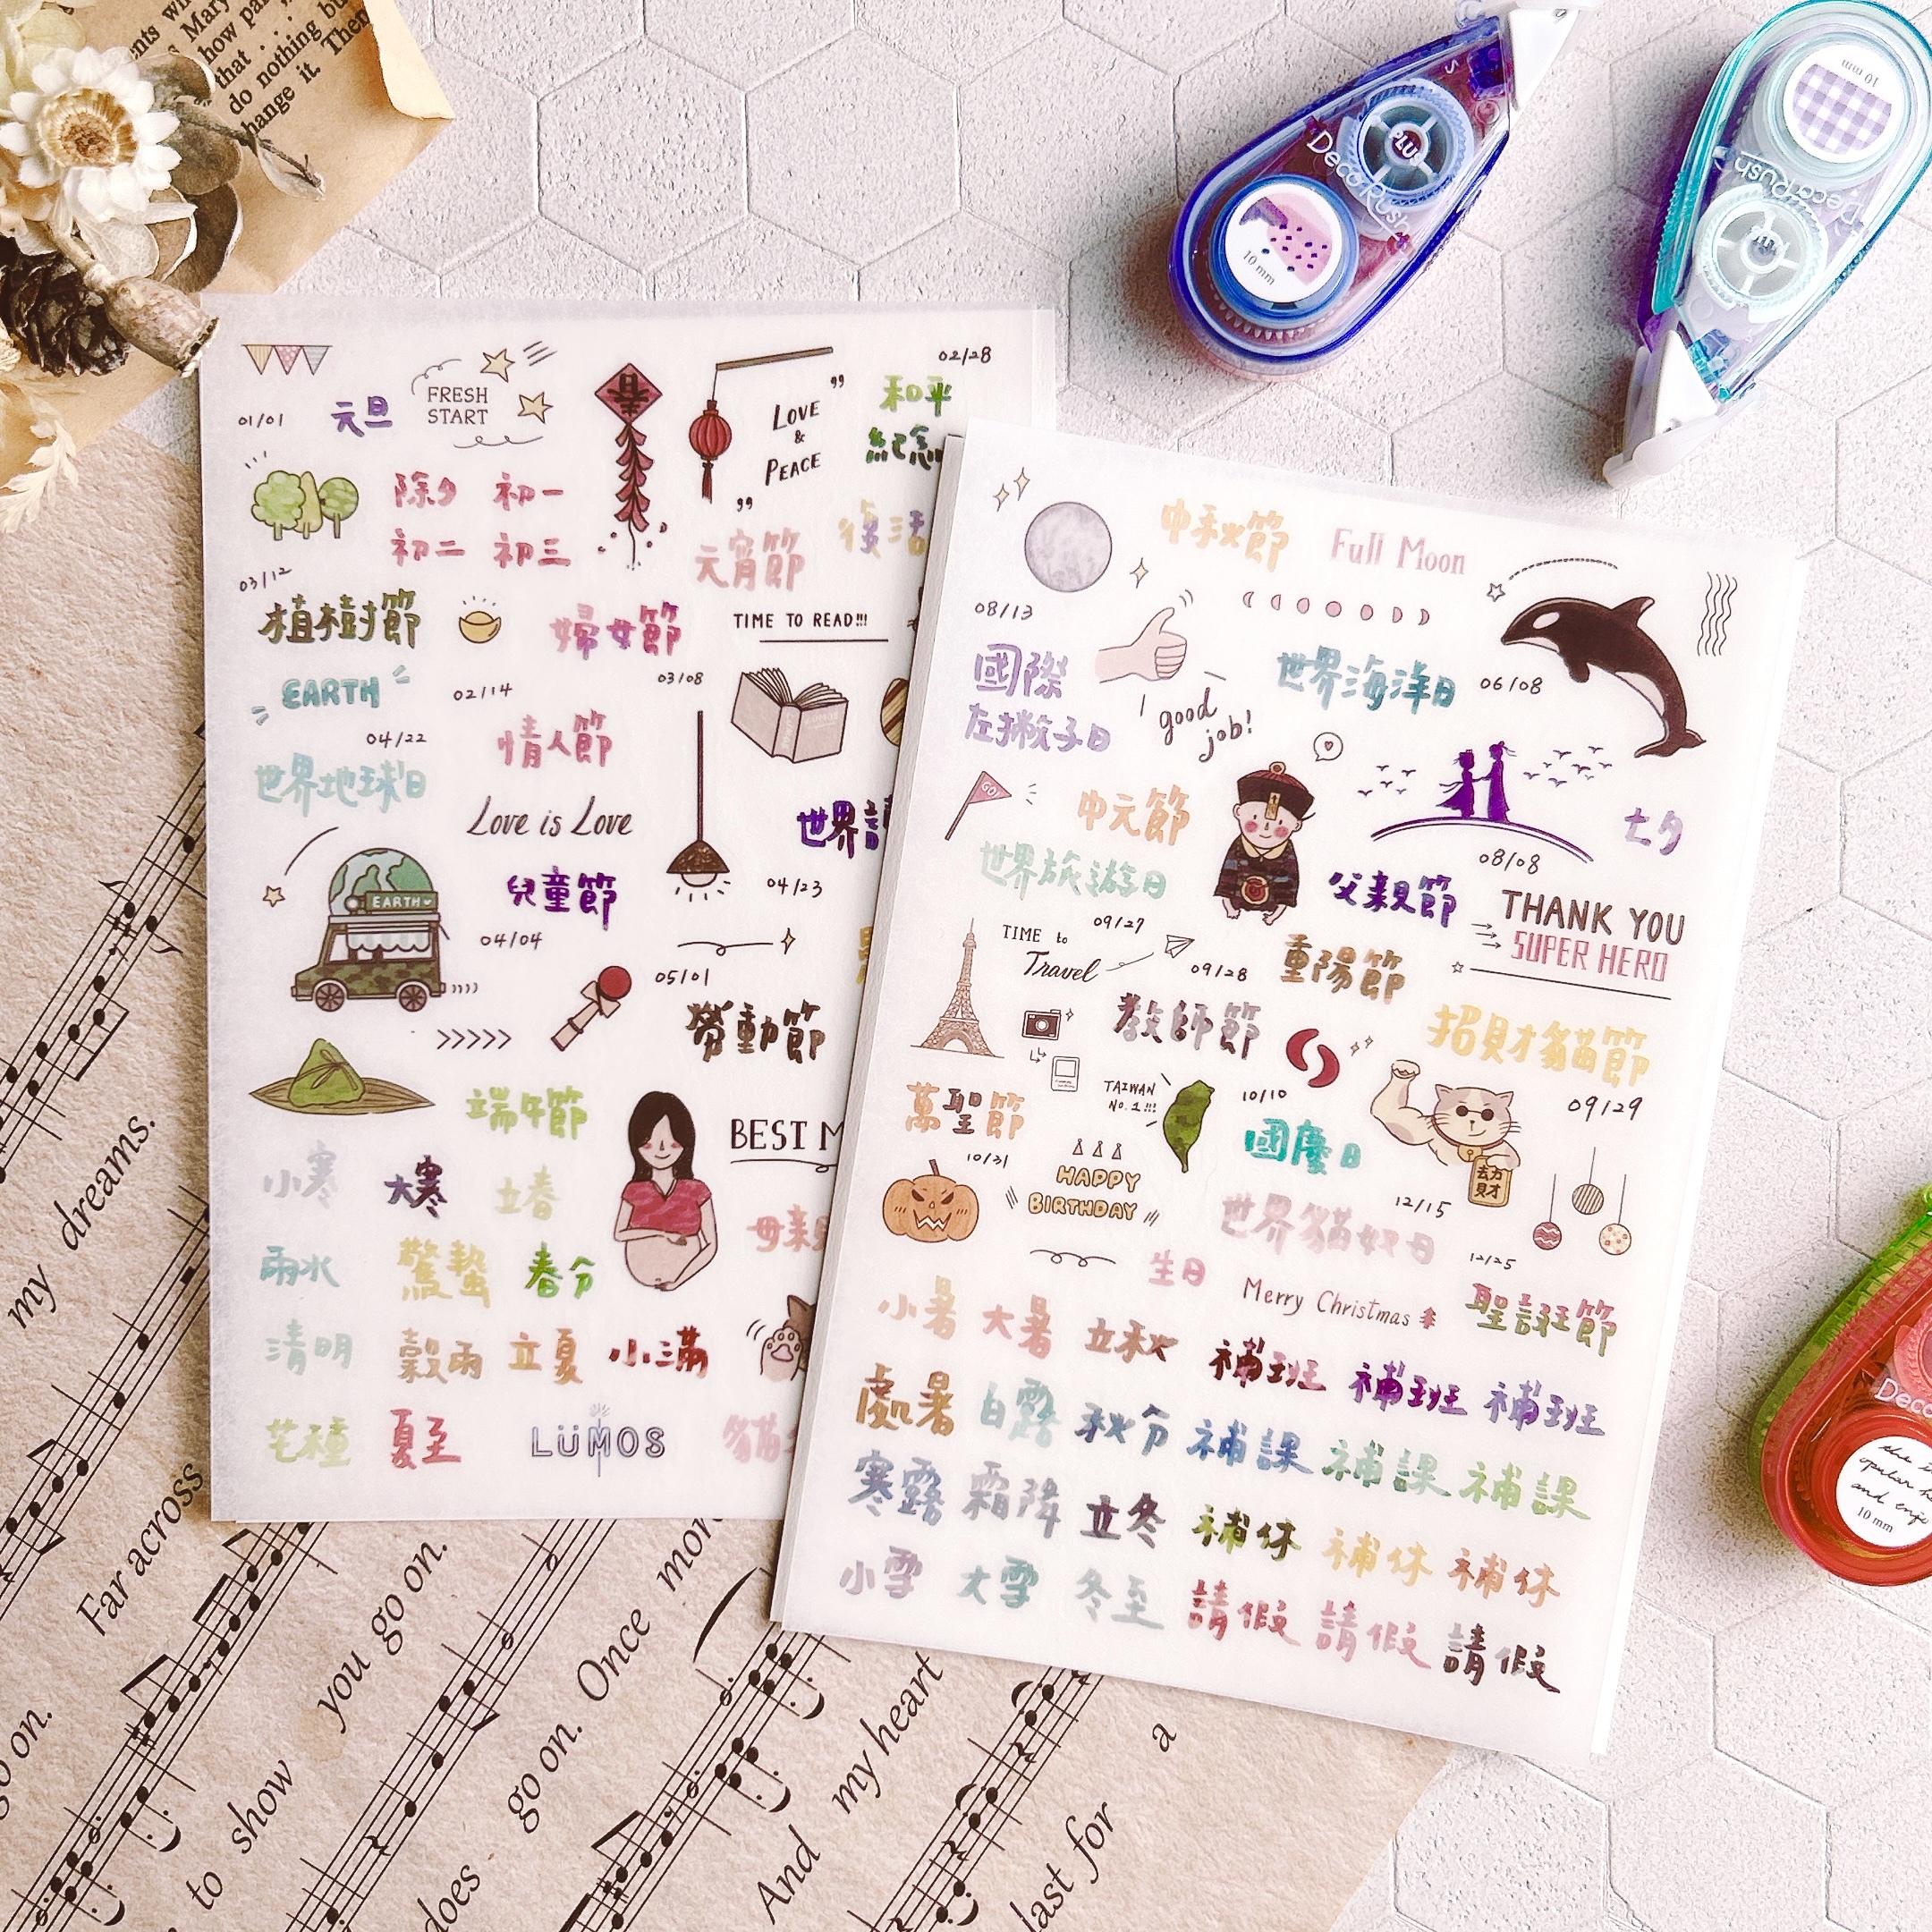 Mary
how pa
that
do nothing bu
hange it. Then
DecoRush
PLUS
10 mm
10 mm
DecoRush
01/01
元旦
FRESH
START
春
LOVE
&
PEACE
02/28
和平
紀念
除夕 初一
初二 初三
元宵節
復活
03/12
植樹節
婦女節
TIME TO READ!!!
EARTH
02/14
03/08
04/22
情人節
世界地球日
Love is Love
世界
EARTH
兒童節
04/23
04/04
05/01
勞動節
端午節
BEST M
小寒 大寒 立春
母親
雨水 驚蟄 春分
清明 穀雨 立夏 小滿
芒種 夏至
LÜMOS
貓
中秋節 Full Moon
08/13
國際
左撇子日
good
job!
世界海洋日 06/08
GO!
中元節
七夕
世界旅遊日
08/08
父親節
THANK YOU
SUPER HERO
TIME to
Travel
09/27
09/28
重陽節
教師節
招財貓節
萬聖節
TAIWAN
No.1!!!
10/10
國慶日
09/29
10/31
HAPPY
BIRTHDAY
12/15
世界貓奴日
生日
Merry Christmas
12/25
聖誕節
小暑 大暑 立秋 補班 補班 補班
處暑 白露 秋分 補課 補課 補課
寒露 霜降 立冬 補休 補休 補休
小雪 大雪 冬至 請假 請假 請假
Deco
10 mm
my dreams.
Far across
you go on.
go on.
to show
does go on. Once mor
And my heart
last for a